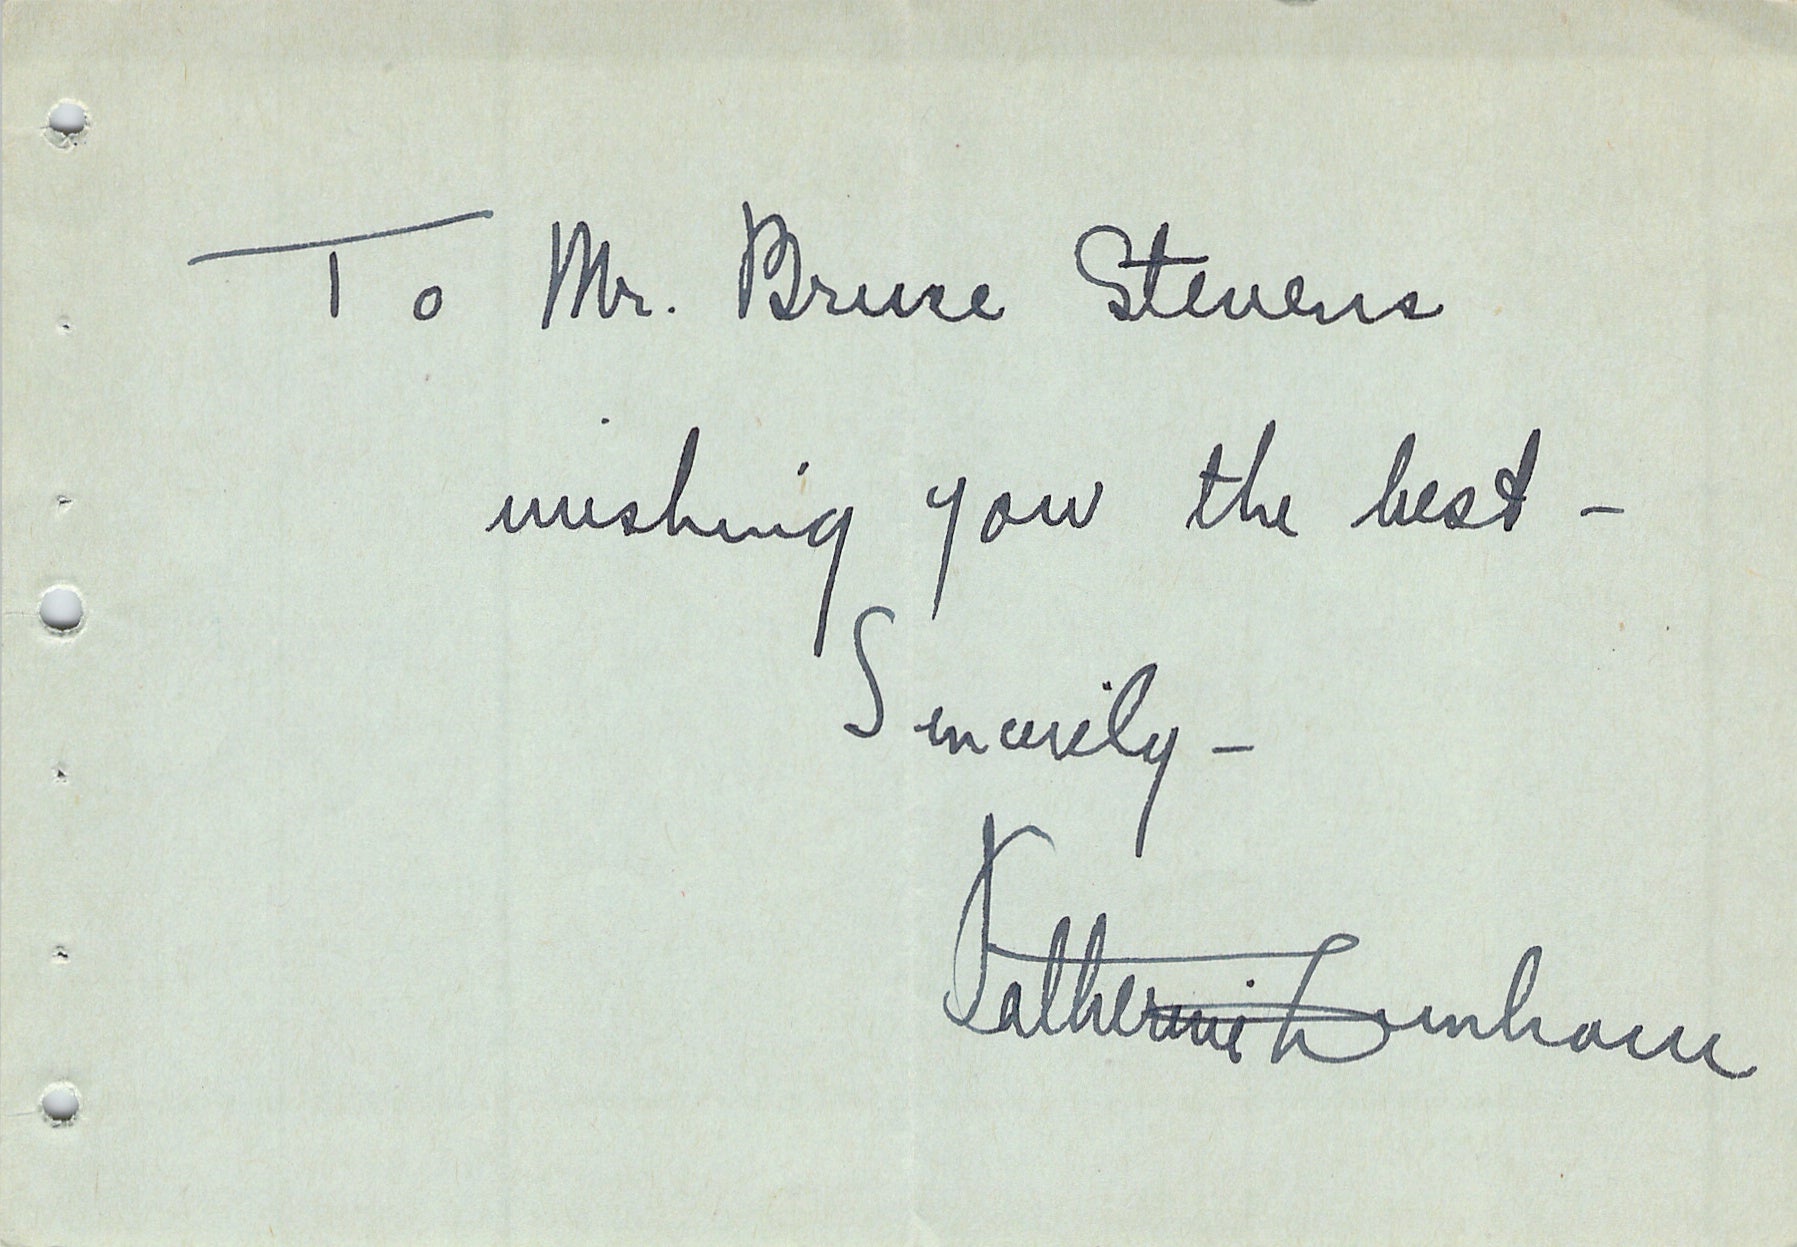 To Mr. Bruce Stevens
wishing you the best –
Sincerely –
Katherine Dunham